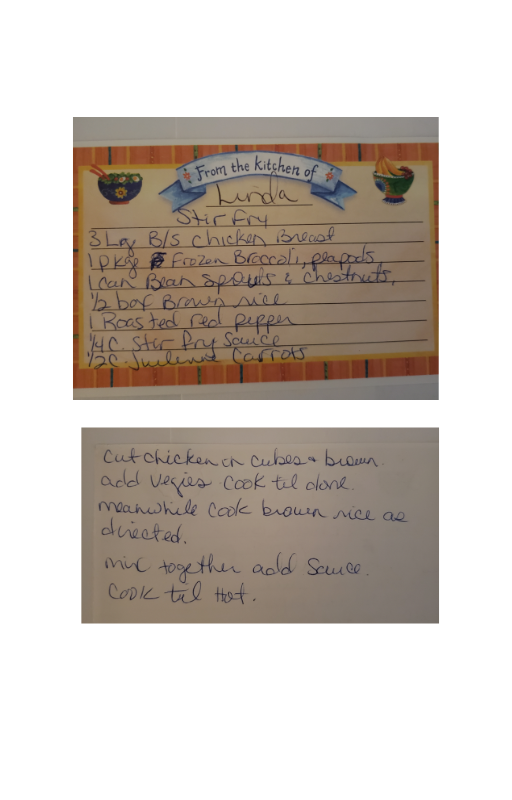 From the kitchen of
Linda
Stir Fry
3 Lrg B/s chicken Breast
1 pkge Frozen Broccoli, peapods
1 can Bean Spouts & chestnuts,
1/2 box Brown rice
1 Roasted red pepper
1/4 C. Stir Fry Sauce
1/2 C. Julienne Carrots
cut chicken in cubes & brown.
add vegies cook til done.
meanwhile cook brown rice as
directed.
mix together add Sauce.
COOK til Hot.